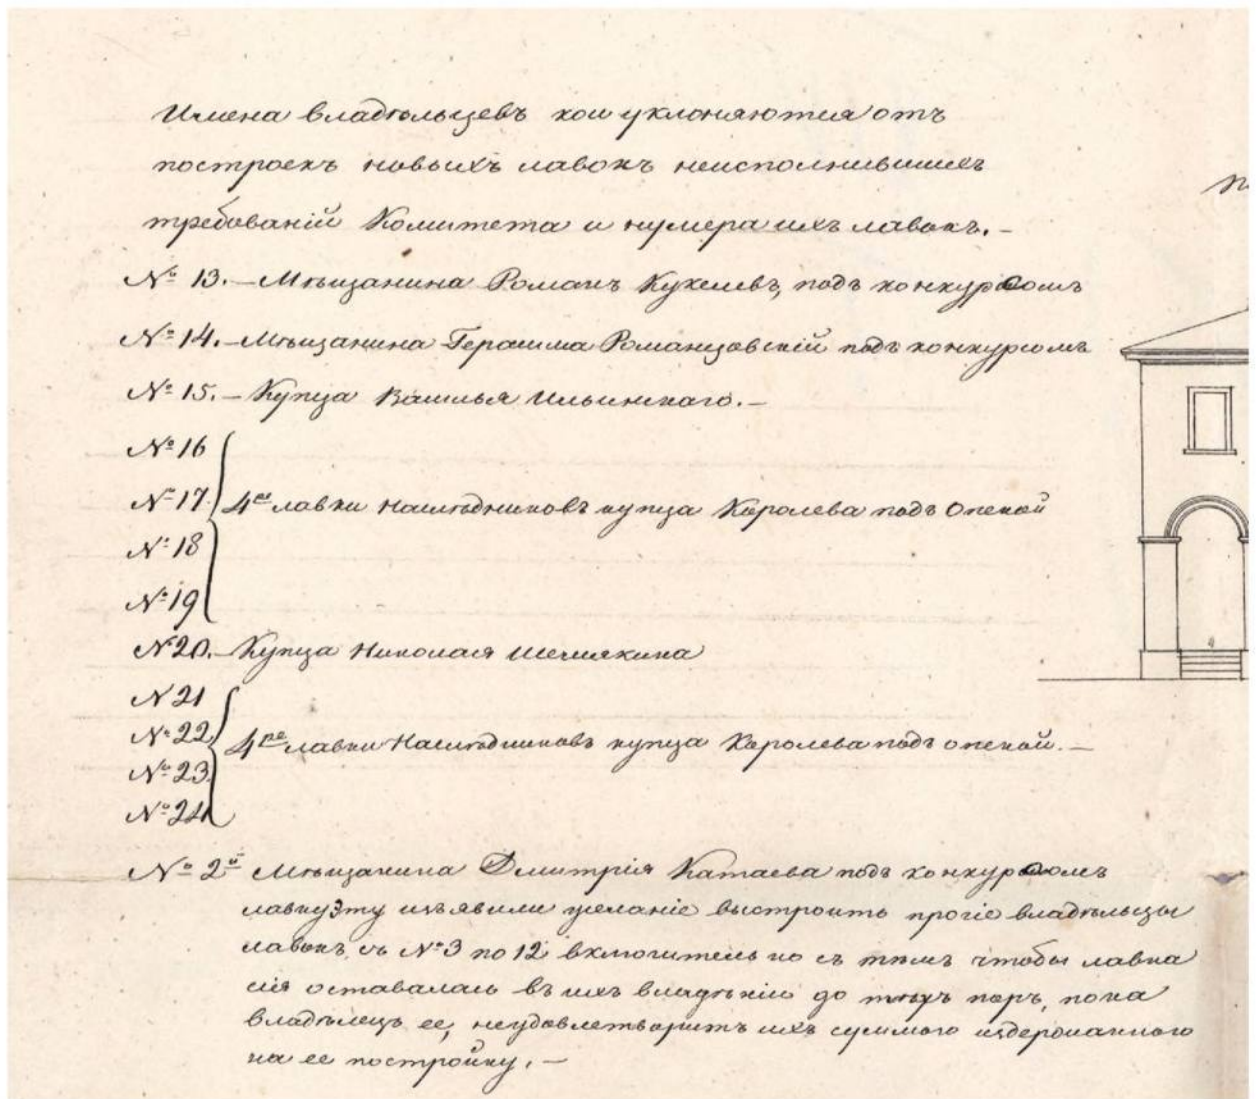 Имена владѣльцевъ кои уклоняются отъ
построекъ новыхъ лавокъ неисполнившихъ
требованій Комитета и нумера ихъ лавокъ. –
№ 13. – Мѣщанина Романъ Кукелевъ, подъ конкурсомъ
№ 14. – Мѣщанина Герасима Романцовскій подъ конкурсомъ
№ 15. – Купца Василья Ильинскаго. –
№ 16
№ 17
4ре лавки наслѣдниковъ купца Королева подъ Опекой
№ 18
№ 19
№ 20. – Купца Николая
N 21
№ 22
4ре лавки Наслѣдниковъ купца Королева подъ опекой. –
№ 23
№ 24
№ 2й Мѣщанина Дмитрія Катаева подъ конкурсомъ
лавку эту изъявили желаніе выстроить прочіе владѣльцы
лавокъ, съ № 3 по 12 включительно съ тѣмъ чтобы лавка
сія оставалась въ ихъ владѣніи до тѣхъ поръ, пока
владѣлецъ ее, неудовлетворитъ ихъ суммою издержанного
на ее постройку. –